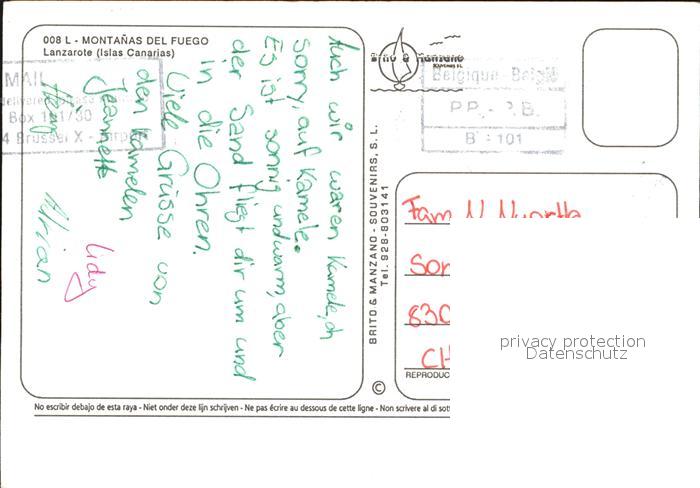 008 L - MONTAÑAS DEL FUEGO
Lanzarote (Islas Canarias)
MAIL
Box 1 1/30
4 Brussel X - Airport
Auch wir waren Kamele, oh
Sorry, auf Kamele.
Es ist sonnig und warm, aber
der Sand fliegt dir um und
in die Ohren.
Viele Grüsse von
den Kamelen
Jeannette
Lidy
BRITO & MANZANO - SOUVENIRS, S. L.
Tel. 928-803141
Belgique - België
P.P. - P.B.
B - 101
Fam
Son
830
CH
REPRODUC
©
privacy protection
Datenschutz
No escribir debajo de esta raya - Niet onder deze lijn schrijven - Ne pas écrire au dessous de cette ligne - Non scrivere al di sot